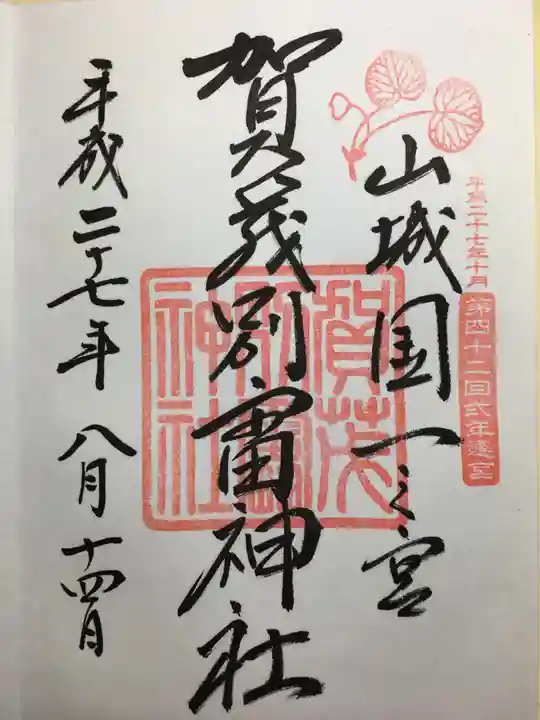 平成二十七年十月
第四十二回式年遷宮
山城国一之宮
賀茂別雷神社
賀茂別雷神社
平成二十七年 八月十四日